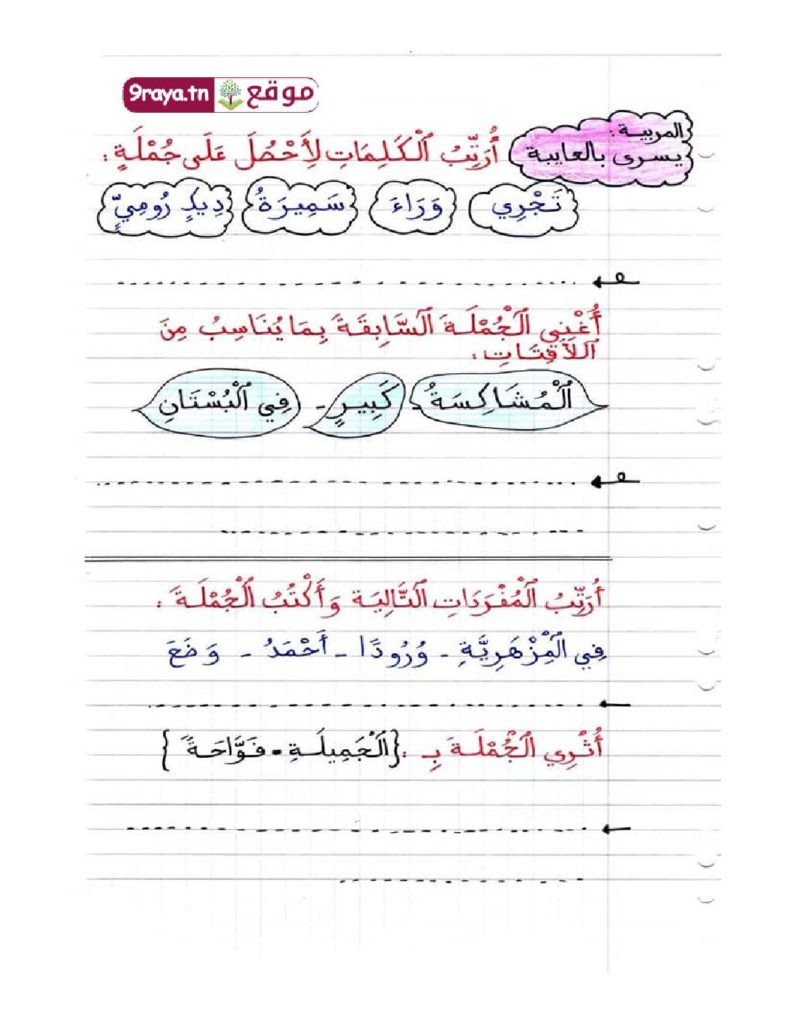 موقع 9raya.tn
المربية :
يسرى بالعايبة
أُرَتِّبُ ٱلْكَلِمَاتِ لِأَحْصُلَ عَلَى جُمْلَةٍ :
تَجْرِي وَرَاءَ سَمِيرَةُ دِيكٍ رُومِيٍّ
أُغْنِي ٱلْجُمْلَةَ ٱلسَّابِقَةَ بِمَا يُنَاسِبُ مِنَ
ٱللَّافِتَاتِ :
ٱلْمُشَاكِسَةُ - كَبِيرٍ - فِي ٱلْبُسْتَانِ
أُرَتِّبُ ٱلْمُفْرَدَاتِ ٱلتَّالِيَةَ وَأَكْتُبُ ٱلْجُمْلَةَ :
فِي ٱلْمِزْهَرِيَّةِ - وُرُودًا - أَحْمَدُ - وَضَعَ
أُثْرِي ٱلْجُمْلَةَ بِـ : {ٱلْجَمِيلَةِ - فَوَّاحَةً }